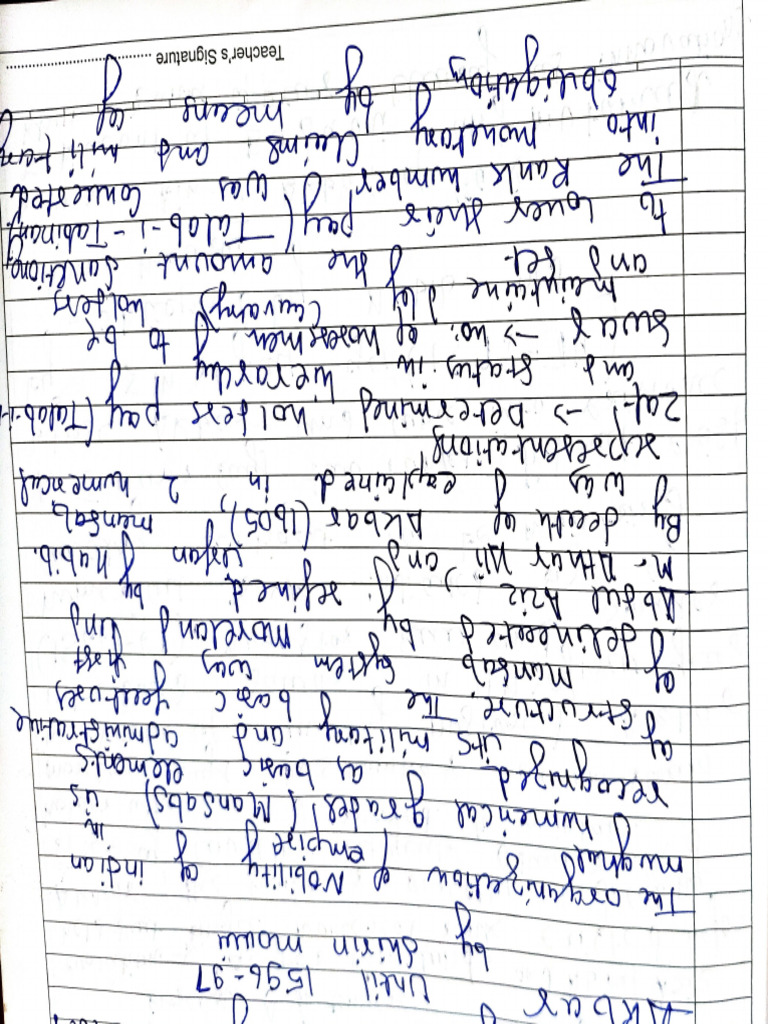 Akbar Until 1596-97
by Shirin moosvi
The organization of Nobility of indian
mughal empire in
numerical grades (Mansabs) is
recognized as basic elements
of its military and administrative
structure. The basic features
of Mansab system was first
delineated by moreland and
Abdul Aziz, refined by
M. Athar Ali and Irfan Habib.
By death of Akbar (1605), mansab
was explained in 2 numerical
representations
Zat -> Determined holders pay (Talab-i-
and status in hierarchy
Swar -> no. of horsemen to be
maintained by holders
and set the amount sanctiong
to cover their pay (Talab-i-Tabinan)
The Rank number was converted
into monetary claims and military
obligation by means of
Teacher's Signature